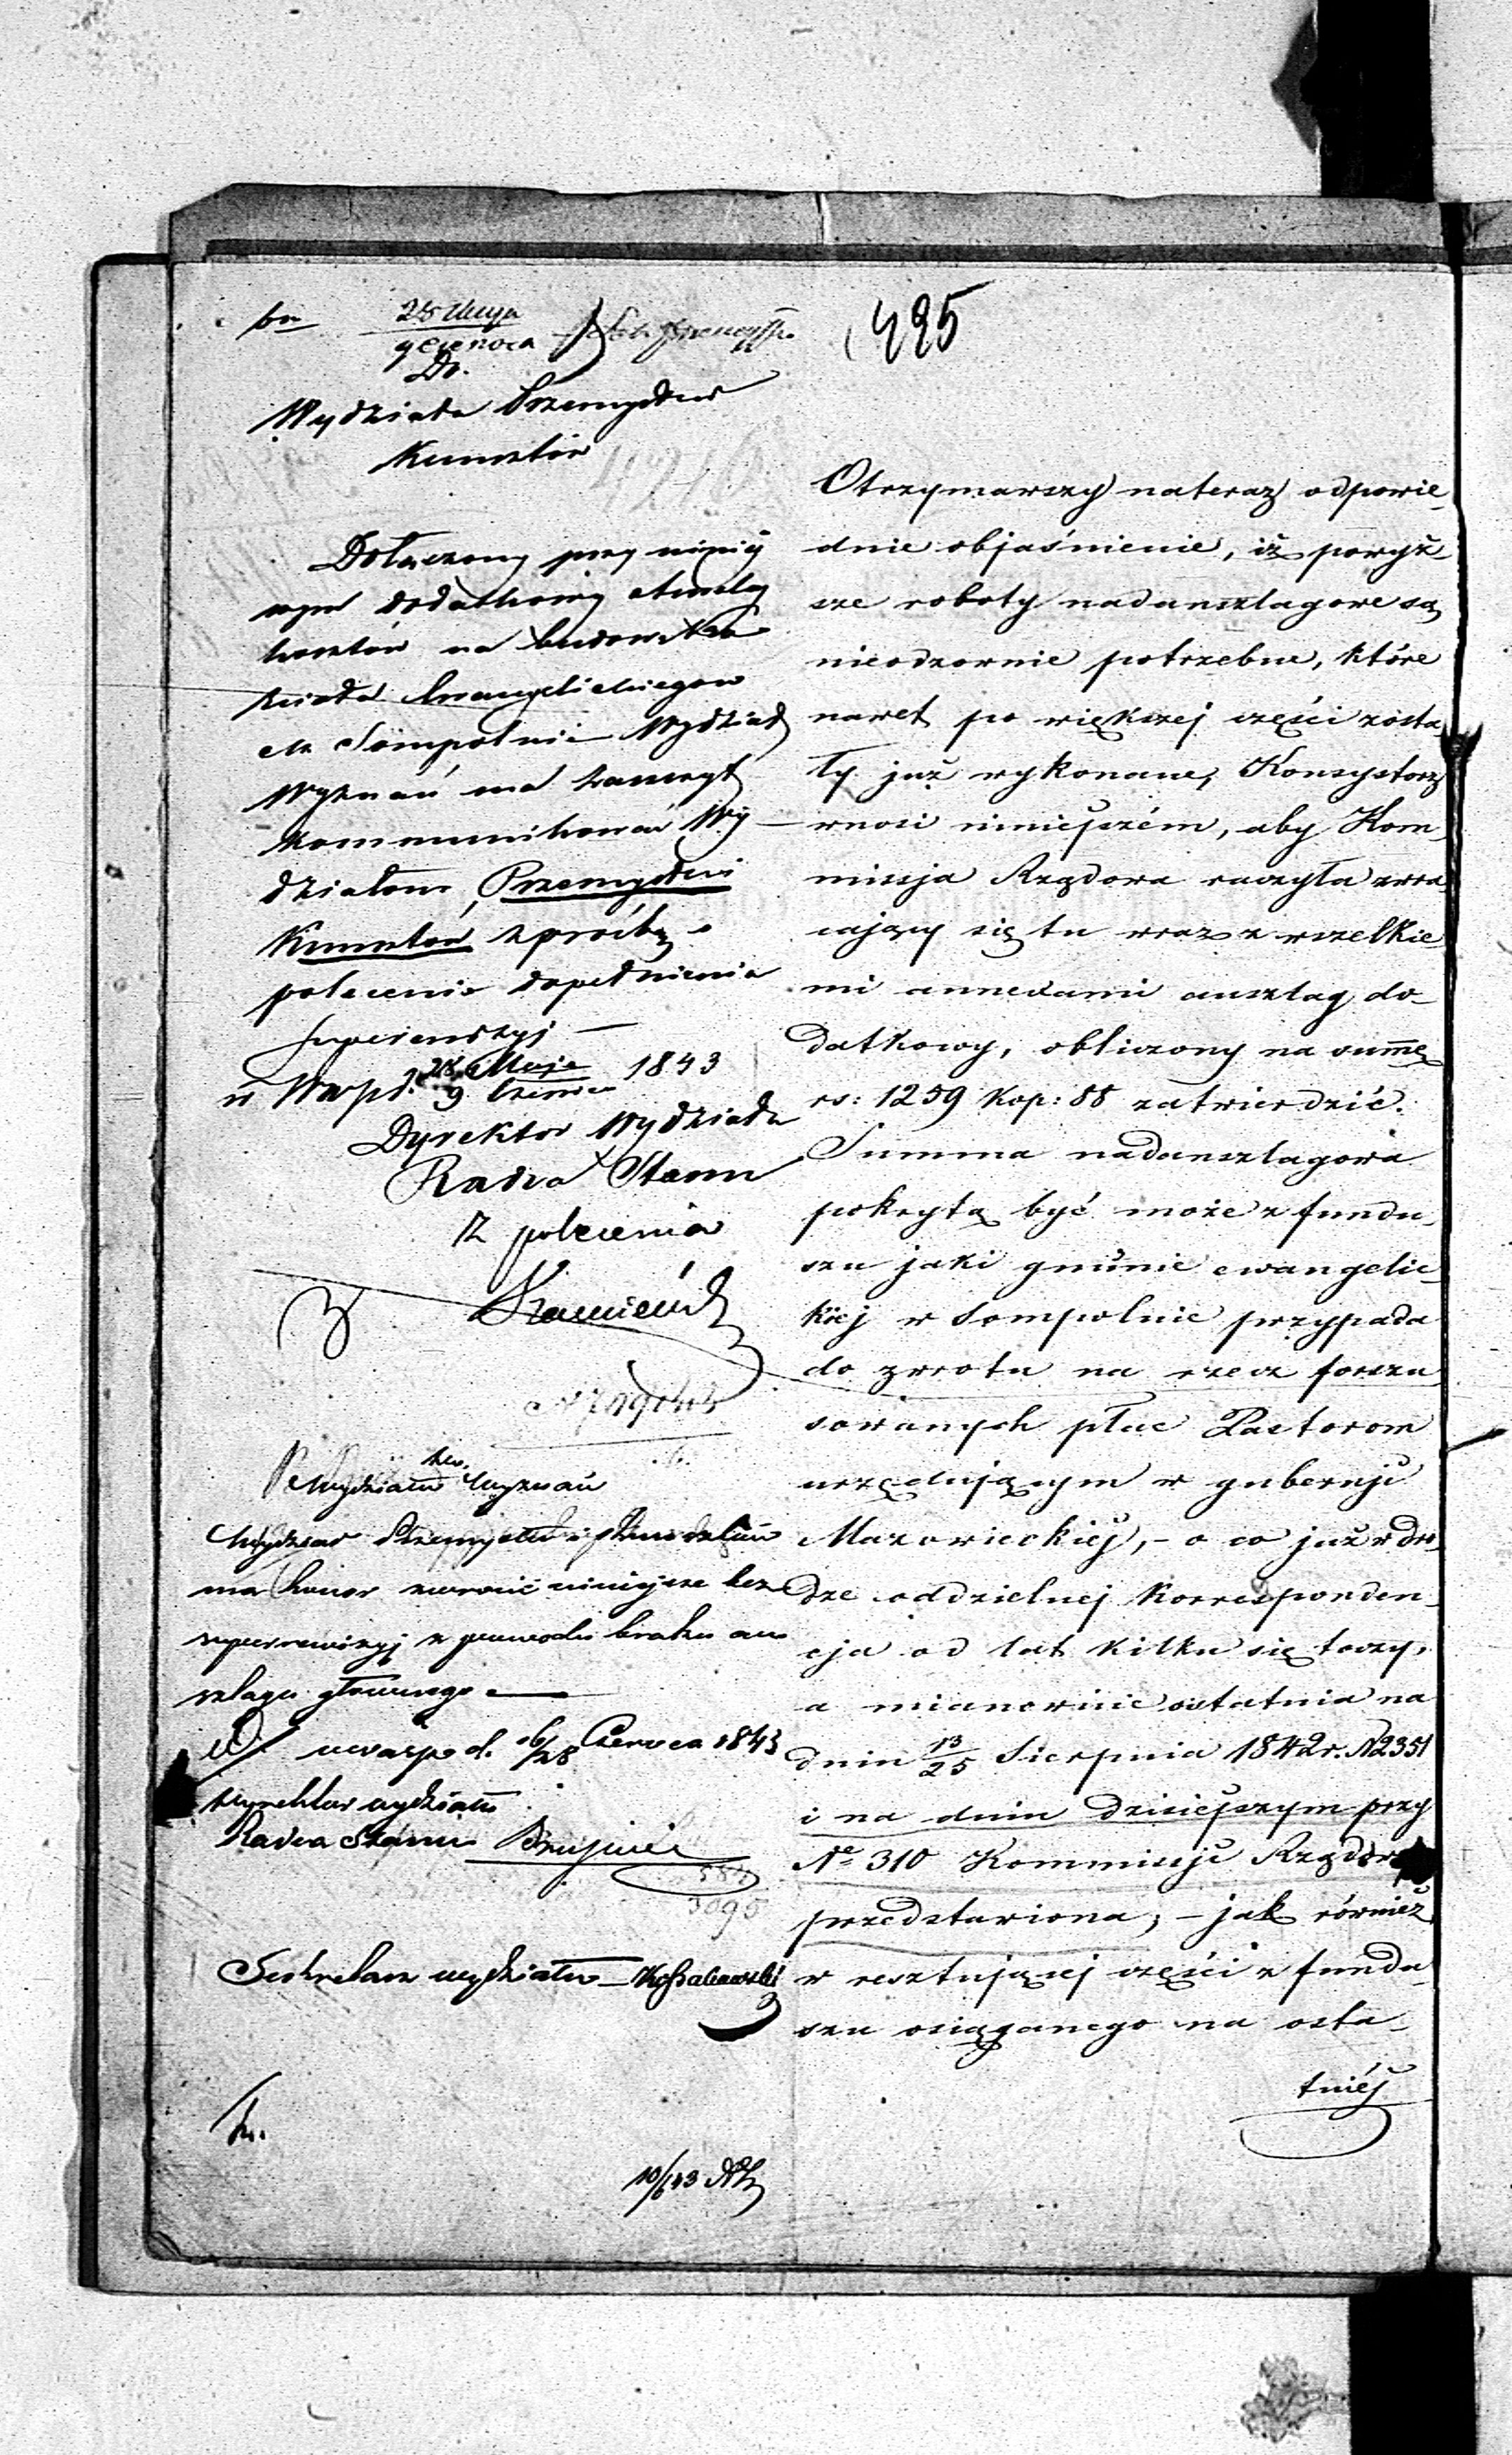 28 Maja
9 Czerwca
Do
Wydziału Przemysłu i
Kunsztów
Dołączony przy niniéj
szym dodatkowy anszlag
kosztów na budowę Ko
ścioła Ewangelickiego w
M. Sompolnie Wydział
Wyznań ma zaszczyt
kommunikować Wy-
działowi Przemysłu i
Kunsztów z prośbą o
polecenie dopełnienia
superrewizyj —
w Warsz. d. 28 Maja / 9 Czerwca 1843
Dyrektor Wydziału
Radca Stanu
Z polecenia
Wydziałowi Wyznań
Wydział Przemysłu i Kunsztów
ma honor zwrócić niniejsze bez
superrewizyj z powodu braku an
szlagu głównego —
w Warsz. d. 16/28 Czerwca 1843
Dyrektor wydziału
Radca Stanu
Sekretarz wydziału
495
Otrzymawszy nateraz odpowie-
dnie objaśnienie, iż powyż-
sze roboty nadanszlagowe są
nieodzownie potrzebne, które
nawet po większej części zosta-
ły już wykonane, Konsystorz
wnosi niniejszém, aby Kom-
missja Rządowa raczyła zwra-
cający się tu wraz z wszelkie-
mi annexami anszlag do-
datkowy, obliczony na summę
rs: 1259 kop: 88 zatwierdzić.
Summa nadanszlagowa
pokrytą być może z fundu-
szu jaki gminie ewangelic-
kiéj w Sompolnie przypada
do zwrotu na rzecz forszu-
sowanych płac Pastorom
urzędującym w gubernji
Mazowieckiéj, - o co już w dro-
dze oddzielnej korresponden-
cja od lat kilku się toczy,
a mianowicie ostatnia na
dniu 13/25 Sierpnia 1842 r. N 2351
i na dniu dzisiejszym przy
Nº 310 Kommissji Rządowej
przedstawiona; - jak również
w resztującej części z fundu-
szu osiąganego na osta-
tniéj